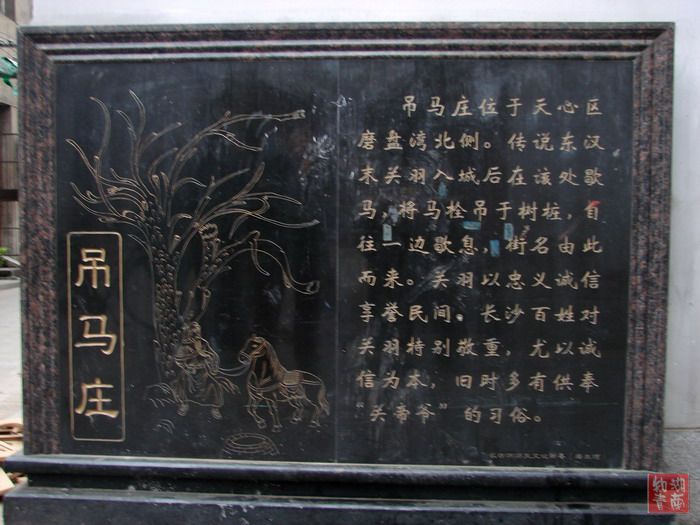 吊马庄
吊马庄位于天心区
磨盘湾北侧。传说东汉
末关羽入城后在该处歇
马，将马拴吊于树桩，自
往一边歇息，街名由此
而来。关羽以忠义诚信
享誉民间。长沙百姓对
关羽特别敬重，尤以诚
信为本，旧时多有供奉
“关帝爷”的习俗。